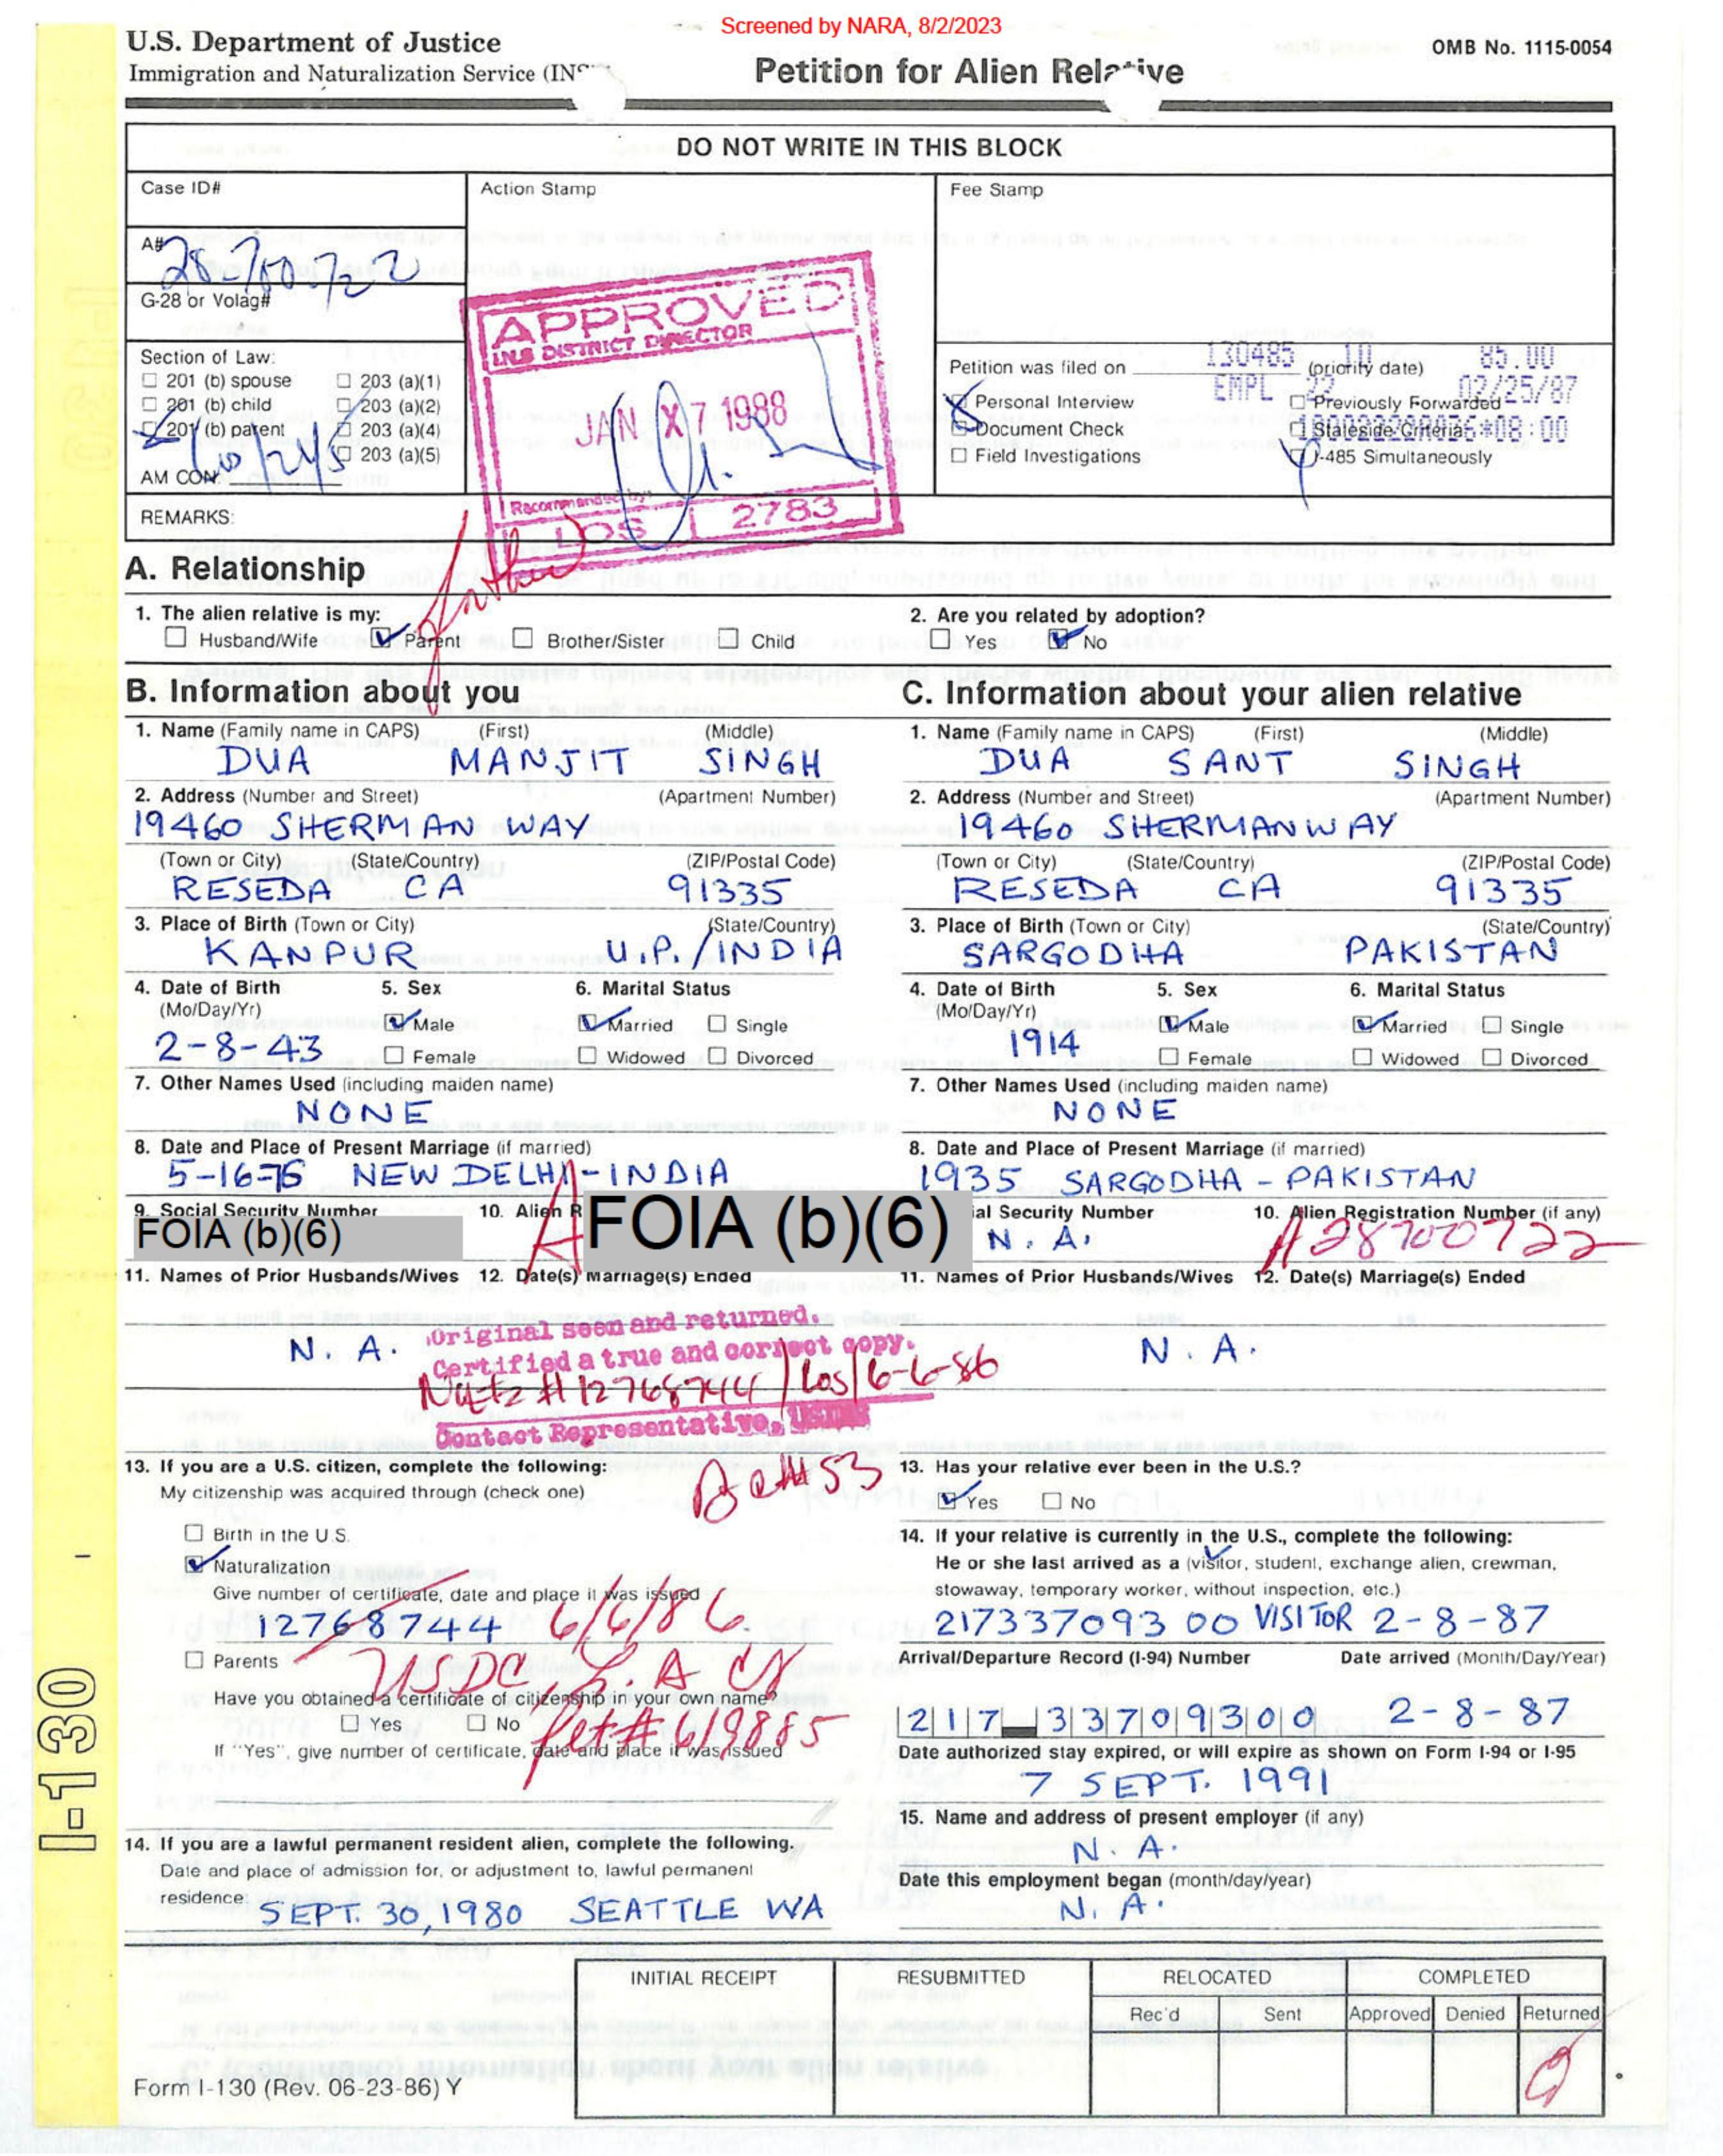 Screened by NARA, 8/2/2023
U.S. Department of Justice
Immigration and Naturalization Service (INS
Petition for Alien Relative
OMB No. 1115-0054
DO NOT WRITE IN THIS BLOCK
Case ID#
Action Stamp
Fee Stamp
A# 28 700 722
G-28 or Volag#
APPROVED
INS DISTRICT DIRECTOR
JAN 7 1988
Recommended by:
LOS 2783
Section of Law:
☐ 201 (b) spouse ☐ 203 (a)(1)
☐ 201 (b) child ☐ 203 (a)(2)
☐ 201 (b) parent ☐ 203 (a)(4)
☐ 203 (a)(5)
AM CON:
Petition was filed on (priority date)
130485 10 85.00
EMPL 22 02/25/87
*08:00
Personal Interview ☐ Previously Forwarded
Document Check ☐ Stateside Criteria
☐ Field Investigations I-485 Simultaneously
REMARKS:
Father
A. Relationship
1. The alien relative is my:
☐ Husband/Wife ☑ Parent ☐ Brother/Sister ☐ Child
2. Are you related by adoption?
☐ Yes ☑ No
B. Information about you
1. Name (Family name in CAPS) (First) (Middle)
DUA MANJIT SINGH
2. Address (Number and Street) (Apartment Number)
19460 SHERMAN WAY
(Town or City) (State/Country) (ZIP/Postal Code)
RESEDA CA 91335
3. Place of Birth (Town or City) (State/Country)
KANPUR U.P./INDIA
4. Date of Birth 5. Sex 6. Marital Status
(Mo/Day/Yr) ☑ Male ☑ Married ☐ Single
2-8-43 ☐ Female ☐ Widowed ☐ Divorced
7. Other Names Used (including maiden name)
NONE
8. Date and Place of Present Marriage (if married)
5-16-76 NEW DELHI-INDIA
9. Social Security Number 10. Alien R
FOIA (b)(6) A FOIA (b)(6)
11. Names of Prior Husbands/Wives 12. Date(s) Marriage(s) Ended
N. A.
Original seen and returned.
Certified a true and correct copy.
Natz # 12768744 / Los / 6-6-86
Contact Representative,
13. If you are a U.S. citizen, complete the following:
My citizenship was acquired through (check one)
☐ Birth in the U.S.
☑ Naturalization
Give number of certificate, date and place it was issued
12768744 6/6/86
USDC, L.A CA
Pet # 619885
☐ Parents
Have you obtained a certificate of citizenship in your own name?
☐ Yes ☐ No
If "Yes", give number of certificate, date and place it was issued
14. If you are a lawful permanent resident alien, complete the following.
Date and place of admission for, or adjustment to, lawful permanent
residence:
SEPT. 30, 1980 SEATTLE WA
C. Information about your alien relative
1. Name (Family name in CAPS) (First) (Middle)
DUA SANT SINGH
2. Address (Number and Street) (Apartment Number)
19460 SHERMAN WAY
(Town or City) (State/Country) (ZIP/Postal Code)
RESEDA CA 91335
3. Place of Birth (Town or City) (State/Country)
SARGODHA PAKISTAN
4. Date of Birth 5. Sex 6. Marital Status
(Mo/Day/Yr) ☑ Male ☑ Married ☐ Single
1914 ☐ Female ☐ Widowed ☐ Divorced
7. Other Names Used (including maiden name)
NONE
8. Date and Place of Present Marriage (if married)
1935 SARGODHA - PAKISTAN
ial Security Number 10. Alien Registration Number (if any)
N. A. A28700722
11. Names of Prior Husbands/Wives 12. Date(s) Marriage(s) Ended
N. A.
13. Has your relative ever been in the U.S.?
☑ Yes ☐ No
14. If your relative is currently in the U.S., complete the following:
He or she last arrived as a (visitor, student, exchange alien, crewman,
stowaway, temporary worker, without inspection, etc.)
217337093 00 VISITOR 2-8-87
Arrival/Departure Record (I-94) Number Date arrived (Month/Day/Year)
217 33709300 2-8-87
Date authorized stay expired, or will expire as shown on Form I-94 or I-95
7 SEPT. 1991
15. Name and address of present employer (if any)
N. A.
Date this employment began (month/day/year)
N. A.
INITIAL RECEIPT RESUBMITTED RELOCATED COMPLETED
Rec'd Sent Approved Denied Returned
Form I-130 (Rev. 06-23-86) Y
I-130